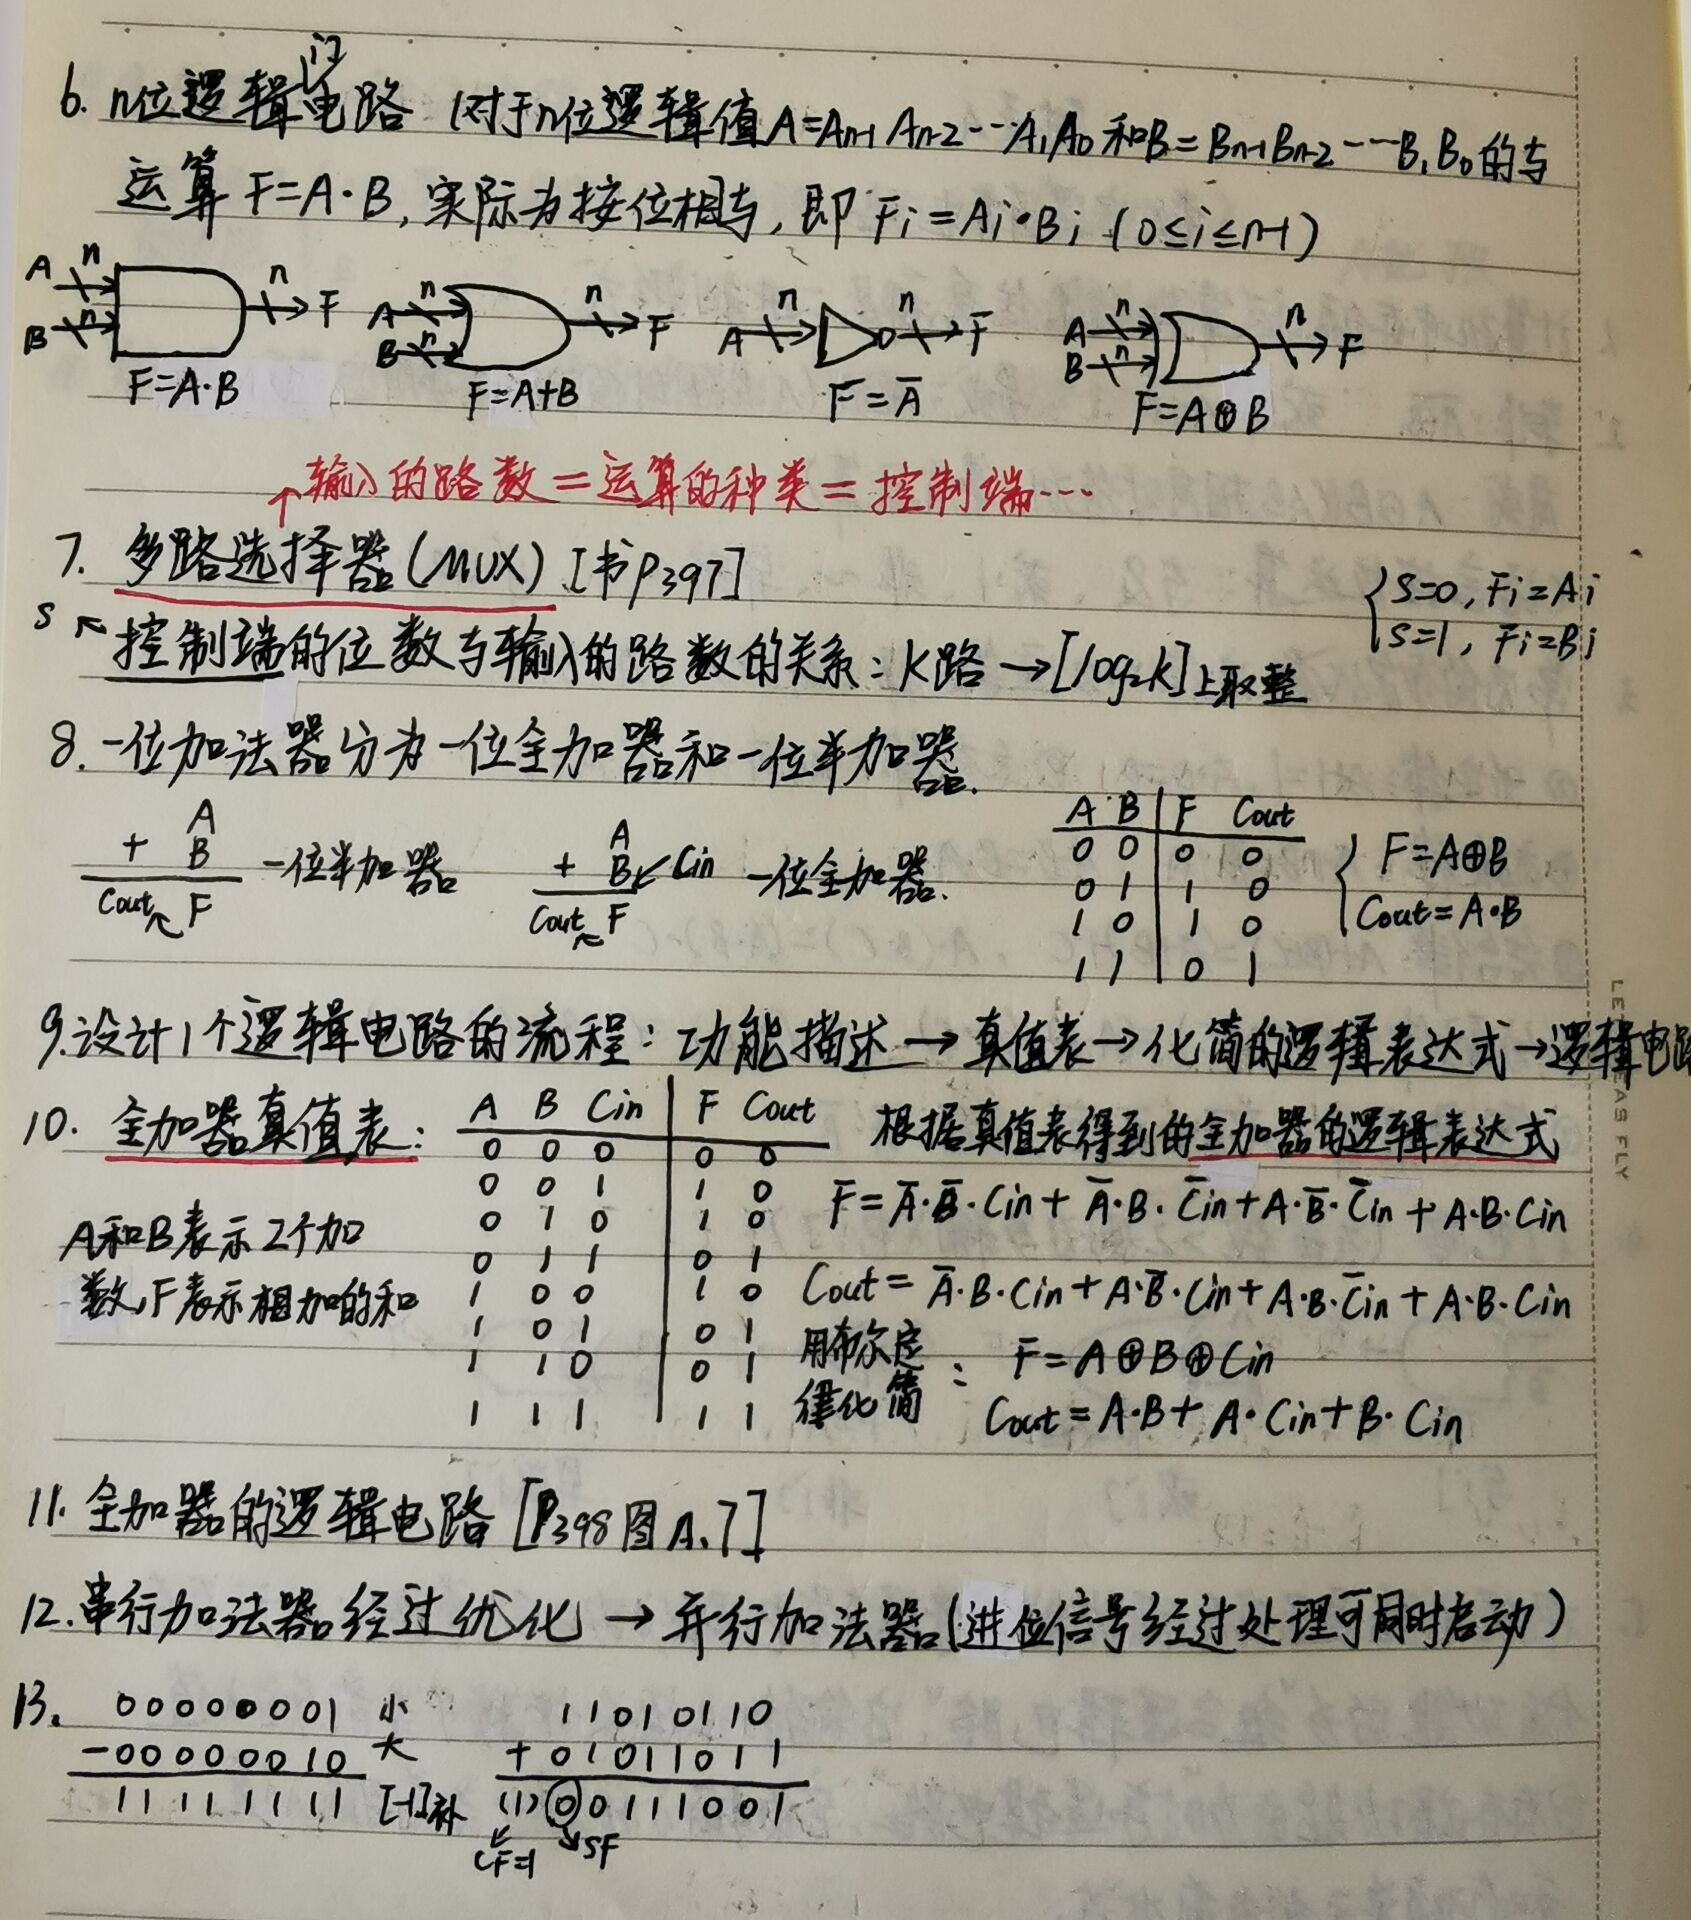 6. n位逻辑门电路 (对于n位逻辑值A=An-1 An-2---A1A0 和B=Bn-1Bn-2---B1B0的与
运算 F=A·B, 实际为按位相与, 即 Fi=Ai·Bi (0≤i≤n-1)
A n n F A n n F A n n F A n n F
B n B n B n
F=A·B F=A+B F=A̅ F=A⊕B
↑输入的路数=运算的种类=控制端…
7. 多路选择器(MUX) [书P397]
{S=0, Fi=Ai
S=1, Fi=Bi
S ↖ 控制端的位数与输入的路数的关系: K路→[log2K]上取整
8. 一位加法器分为一位全加器和一位半加器.
A
+ B 一位半加器
Cout F
A
+ B Cin 一位全加器.
Cout F
A B | F Cout
0 0 | 0 0
0 1 | 1 0
1 0 | 1 0
1 1 | 0 1
{F=A⊕B
Cout=A·B
9. 设计1个逻辑电路的流程: 功能描述→真值表→化简的逻辑表达式→逻辑电路
10. 全加器真值表:
A B Cin | F Cout
0 0 0 | 0 0
0 0 1 | 1 0
0 1 0 | 1 0
0 1 1 | 0 1
1 0 0 | 1 0
1 0 1 | 0 1
1 1 0 | 0 1
1 1 1 | 1 1
A和B表示2个加
数, F表示相加的和
根据真值表得到的全加器的逻辑表达式
F=A̅·B̅·Cin+A̅·B·C̅in+A·B̅·C̅in+A·B·Cin
Cout=A̅·B·Cin+A·B̅·Cin+A·B·C̅in+A·B·Cin
用布尔定
律化简 : F=A⊕B⊕Cin
Cout=A·B+A·Cin+B·Cin
11. 全加器的逻辑电路 [P398图A.7]
12. 串行加法器经过优化→并行加法器(进位信号经过处理可同时启动)
13. 00000001 小
-00000010 大
11111111 [-1]补
11010110
+01011011
(1)00111001
CF=1 SF
LEAS FLY